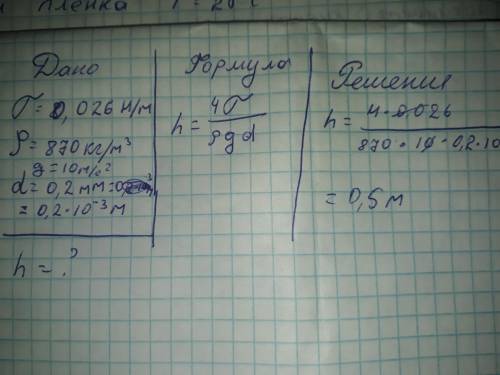 пленка
Дано
σ = 0,026 Н/м
ρ = 870 кг/м³
g = 10 м/с²
d = 0,2 мм =
= 0,2·10⁻³ м
h = ?
Формула
h = 4σ / ρgd
Решения
h = 4·0,026 / 870·10·0,2·10
= 0,5 м